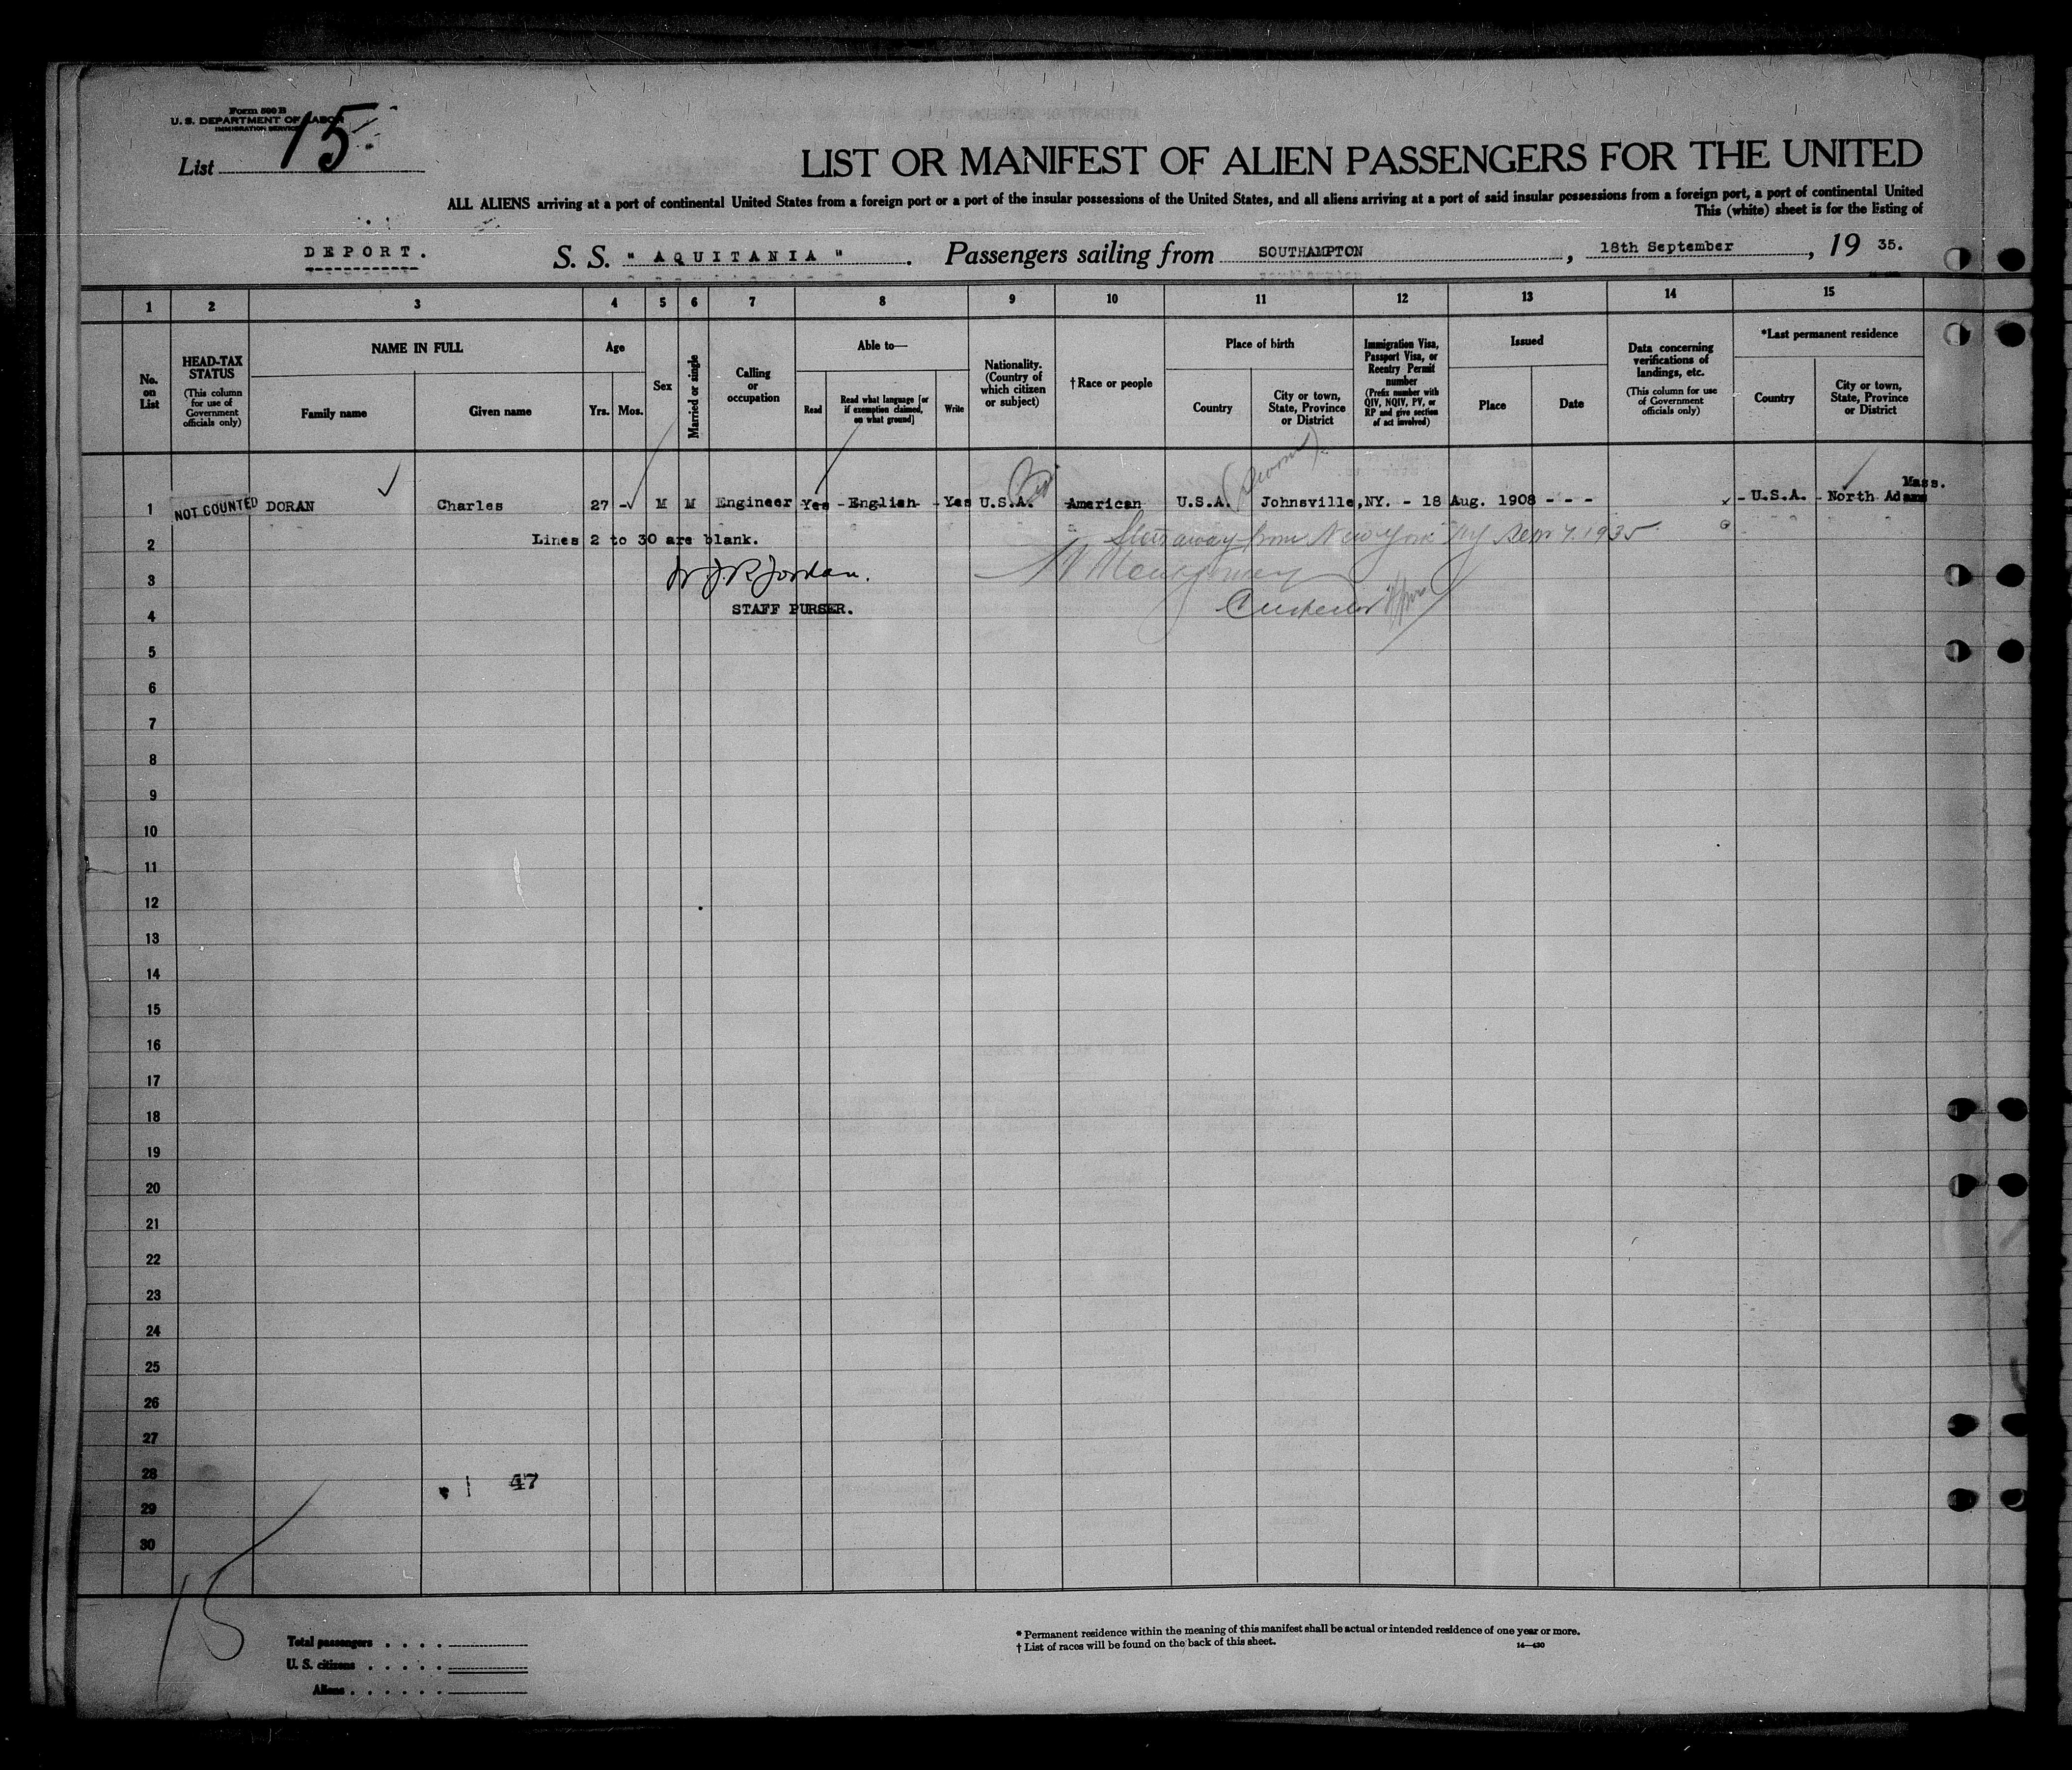 Form 500 B
U. S. DEPARTMENT OF LABOR
IMMIGRATION SERVICE
List 15
LIST OR MANIFEST OF ALIEN PASSENGERS FOR THE UNITED
ALL ALIENS arriving at a port of continental United States from a foreign port or a port of the insular possessions of the United States, and all aliens arriving at a port of said insular possessions from a foreign port, a port of continental United
This (white) sheet is for the listing of
DEPORT.
S. S. " AQUITANIA " . Passengers sailing from SOUTHAMPTON , 18th September , 19 35.
1 2 3 4 5 6 7 8 9 10 11 12 13 14 15
No. on List
HEAD-TAX STATUS
(This column for use of Government officials only)
NAME IN FULL
Family name
Given name
Age
Yrs. Mos.
Sex
Married or single
Calling or occupation
Able to—
Read
Read what language [or if exemption claimed, on what ground]
Write
Nationality. (Country of which citizen or subject)
† Race or people
Place of birth
Country
City or town, State, Province or District
Immigration Visa, Passport Visa, or Reentry Permit number
(Prefix number with QIV, NQIV, PV, or RP and give section of act involved)
Issued
Place
Date
Data concerning verifications of landings, etc.
(This column for use of Government officials only)
*Last permanent residence
Country
City or town, State, Province or District
1 NOT COUNTED DORAN Charles 27 - M M Engineer Yes - English - Yes U.S.A. American U.S.A. Johnsville,NY. - 18 Aug. 1908 - - - x - U.S.A. - North Adams Mass.
2 Lines 2 to 30 are blank. Stowaway from New York NY Sep 7. 1935
3 J R Jordan. Montgomery
4 STAFF PURSER. Inspector
5
6
7
8
9
10
11
12
13
14
15
16
17
18
19
20
21
22
23
24
25
26
27
28 47
29
30
15
Total passengers . . . .
U. S. citizens . . . . .
Aliens . . . . . .
* Permanent residence within the meaning of this manifest shall be actual or intended residence of one year or more.
† List of races will be found on the back of this sheet.
14—430